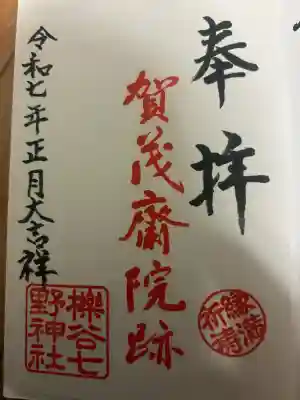 奉拝
縁満祈願
賀茂齋院跡
令和七年正月大吉祥
櫟谷七野神社